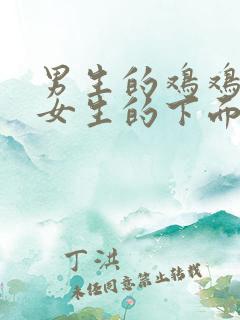 男生的鸡鸡
女生的下面
丁洪
未经同意禁止转载